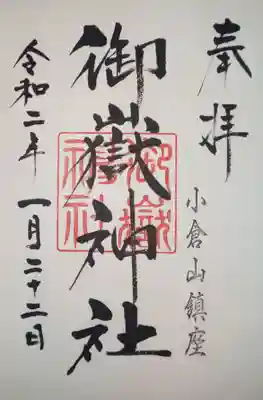 奉拝
小倉山鎮座
御嶽神社
御嶽神社
令和二年一月二十二日